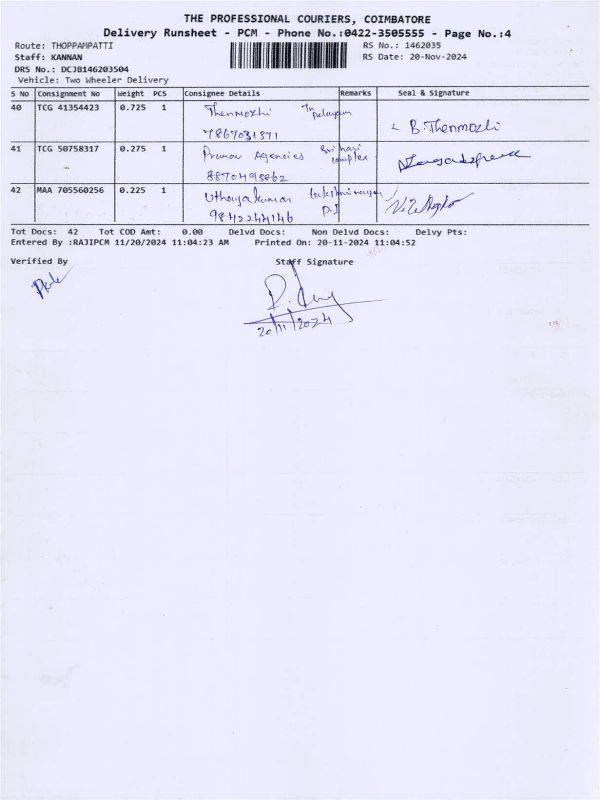 THE PROFESSIONAL COURIERS, COIMBATORE
Delivery Runsheet - PCM - Phone No.:0422-3505555 - Page No.:4
Route: THOPPAMPATTI RS No.: 1462035
Staff: KANNAN RS Date: 20-Nov-2024
DRS No.: DCJB146203504
Vehicle: Two Wheeler Delivery
S No Consignment No Weight PCS Consignee Details Remarks Seal & Signature
40 TCG 41354423 0.725 1 Thenmozhi
B. Thenmozhi
7867031371
41 TCG 50758317 0.275 1 Pranav Agencies Sri hari
complex
8870495862
42 MAA 705560256 0.225 1 Uthayakumar
9842244146
Tot Docs: 42 Tot COD Amt: 0.00 Delvd Docs: Non Delvd Docs: Delvy Pts:
Entered By :RAJIPCM 11/20/2024 11:04:23 AM Printed On: 20-11-2024 11:04:52
Verified By Staff Signature
20/11/2024